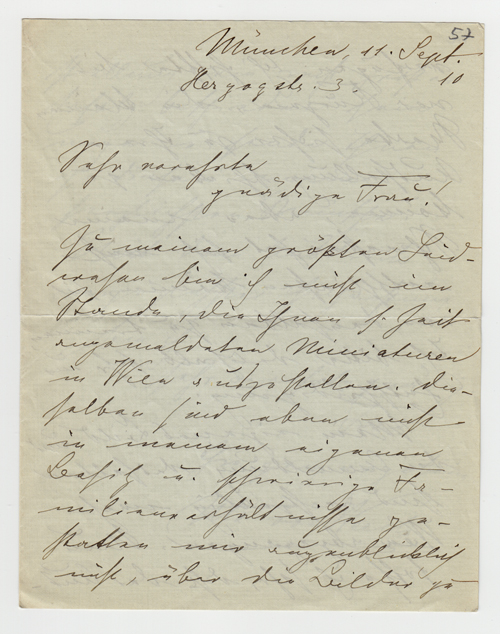 57
München, 11. Sept.
10
Herzogstr. 3.
Sehr verehrte
gnädige Frau!
Zu meinem größten Leid-
wesen bin ich nicht im
Stande, die Ihnen s. Zeit
angemeldeten Miniaturen
in Wien auszustellen. Die-
selben sind eben nicht
in meinem eigenen
Besitz u. schwierige Fa-
milienverhältnisse ge-
statten mir augenblicklich
nicht, über die Bilder zu